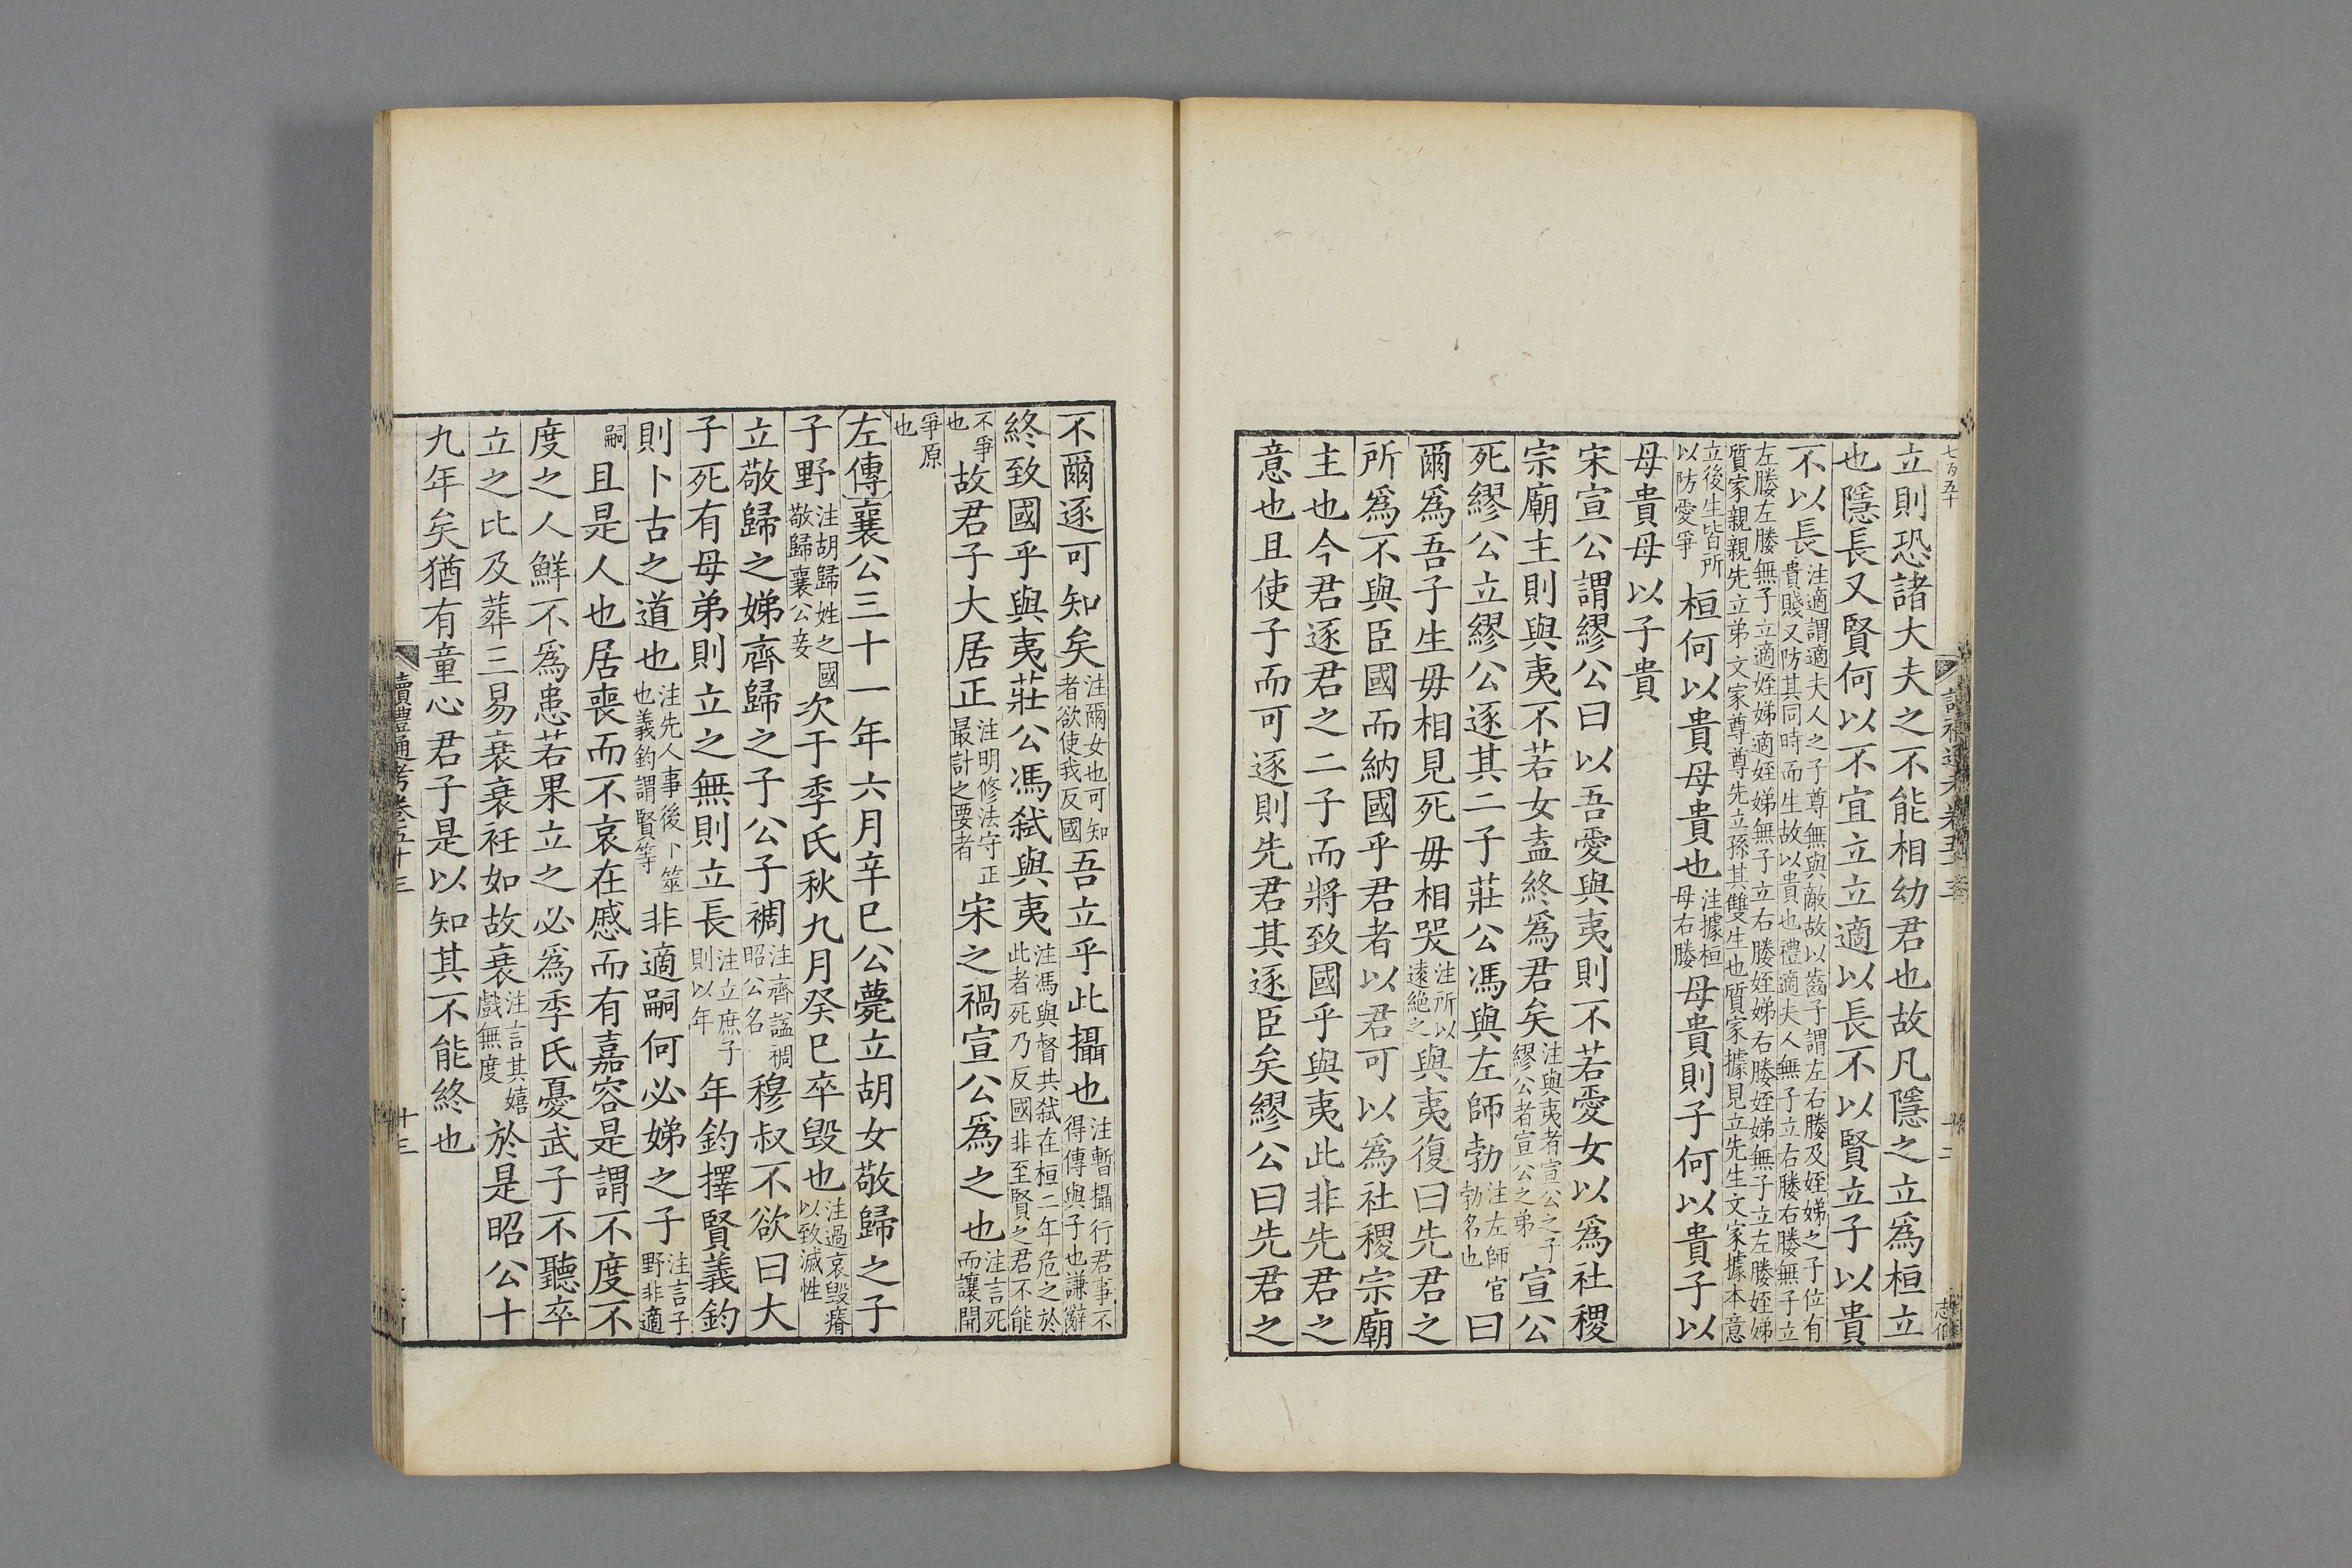 七百五十
立則恐諸大夫之不能相幼君也故凡隱之立爲桓立
也隱長又賢何以不宜立立適以長不以賢立子以貴
不以長注適謂適夫人之子尊無與敵故以齒子謂左右媵及姪娣之子位有貴賤又防其同時而生故以貴也禮適夫人無子立右媵右媵無子立
左媵左媵無子立適姪娣適姪娣無子立右媵姪娣右媵姪娣無子立左媵姪娣質家親親先立弟文家尊尊先立孫其雙生也質家據見立先生文家據本意
立後生皆所以防愛爭桓何以貴母貴也注據桓母右媵母貴則子何以貴子以
母貴母以子貴
宋宣公謂繆公曰以吾愛與夷則不若愛女以爲社稷
宗廟主則與夷不若女盍終爲君矣注與夷者宣公之子繆公者宣公之弟宣公
死繆公立繆公逐其二子莊公馮與左師勃注左師官勃名也曰
爾爲吾子生毋相見死毋相哭注所以遠絶之與夷復曰先君之
所爲不與臣國而納國乎君者以君可以爲社稷宗廟
主也今君逐君之二子而將致國乎與夷此非先君之
意也且使子而可逐則先君其逐臣矣繆公曰先君之
不爾逐可知矣注爾女也可知者欲使我反國吾立乎此攝也注暫攝行君事不得傳與子也謙辭
終致國乎與夷莊公馮弒與夷注馮與督共弒在桓二年危之於此者死乃反國非至賢之君不能
不爭也故君子大居正注明修法守正最計之要者宋之禍宣公爲之也注言死而讓開
爭原也
左傳襄公三十一年六月辛巳公薨立胡女敬歸之子
子野注胡歸姓之國敬歸襄公妾次于季氏秋九月癸巳卒毁也注過哀毁瘠以致滅性
立敬歸之娣齊歸之子公子裯注齊謚裯昭公名穆叔不欲曰大
子死有母弟則立之無則立長注立庶子則以年年鈞擇賢義鈞
則卜古之道也注先人事後卜筮也義鈞謂賢等非適嗣何必娣之子注言子野非適
嗣且是人也居喪而不哀在慼而有嘉容是謂不度不
度之人鮮不爲患若果立之必爲季氏憂武子不聽卒
立之比及葬三易衰衰衽如故衰注言其嬉戲無度於是昭公十
九年矣猶有童心君子是以知其不能終也
讀禮通考卷五十三
十三